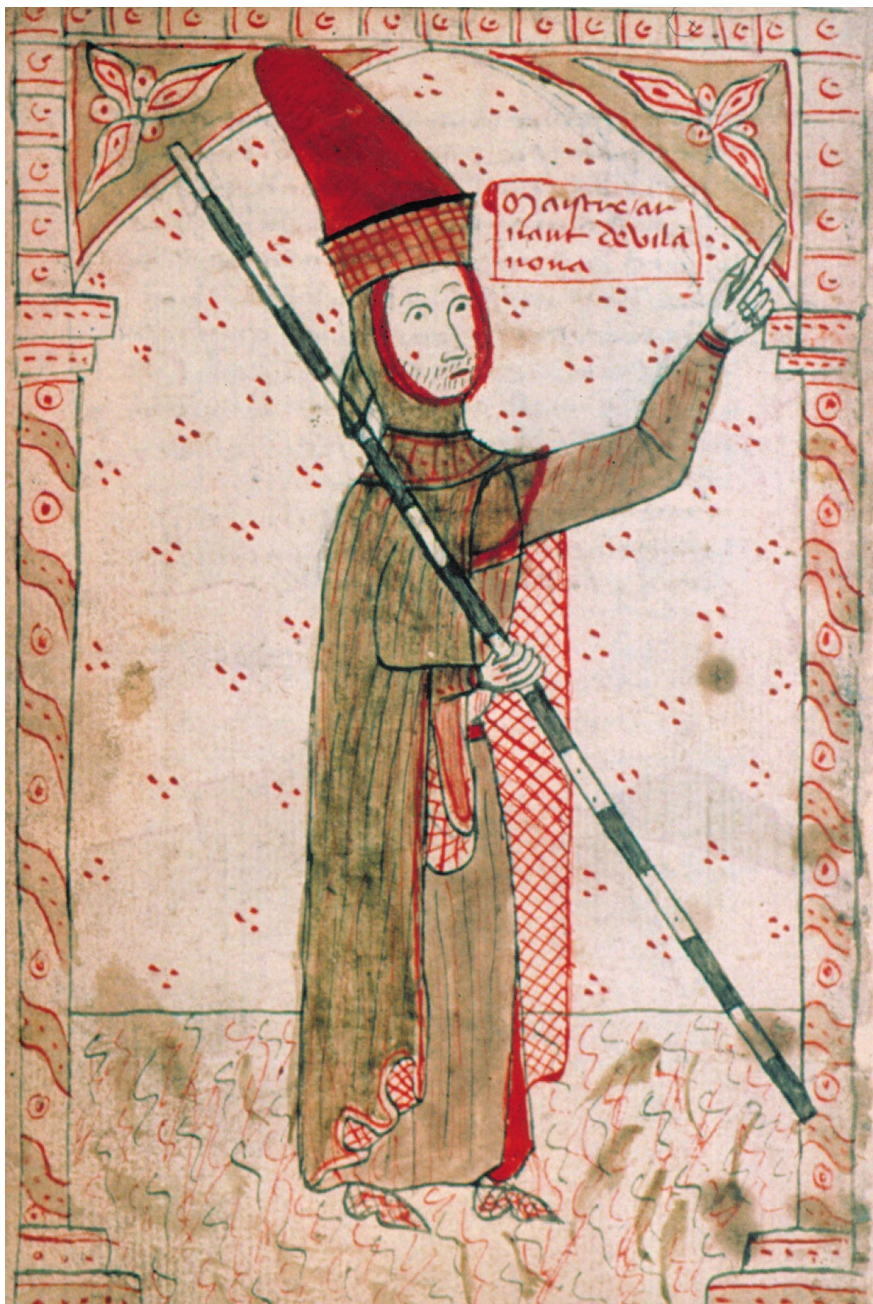 Maistre / ar
naut de vila
nova